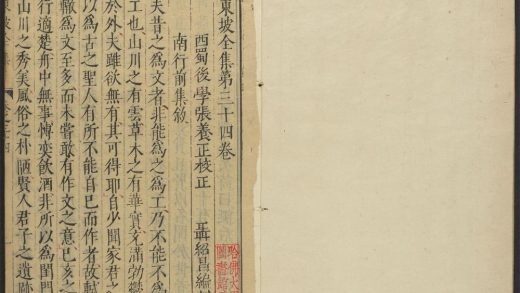 東坡全集第三十四卷
西蜀後學張養正校正　聶紹昌編
南行前集敘
夫昔之爲文者非能爲之爲工乃不能不爲
工也山川之有雲草木之有華實充滿勃鬱
於外夫雖欲無有其可得耶自少聞家君之
以爲古之聖人有所不能自已而作者故軾
轍爲文至多而未嘗敢有作文之意己亥之
行適楚舟中無事博奕飲酒非所以爲閨門
山川之秀美風俗之朴陋賢人君子之遺跡
坡全集